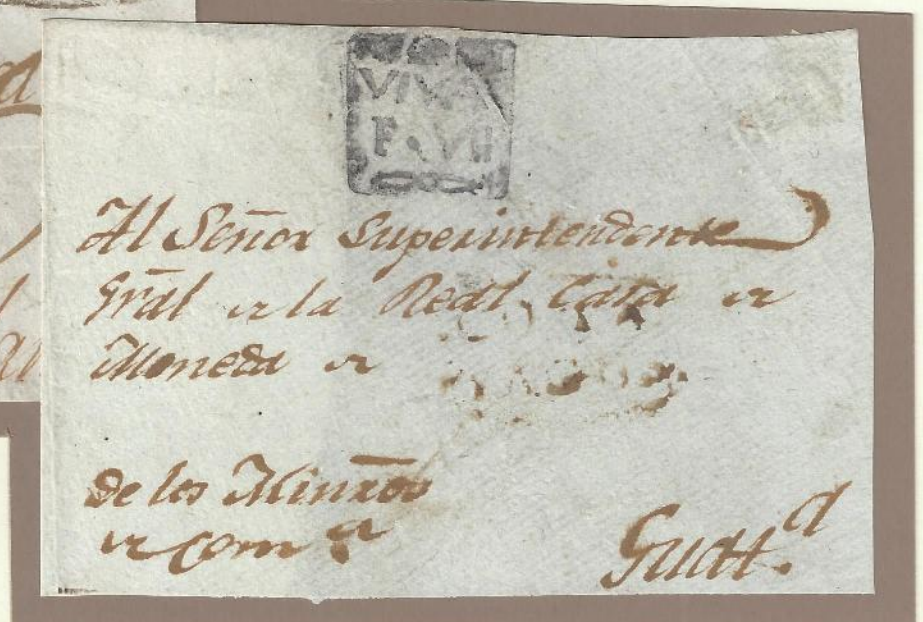 VIVA
F.VII
Al Señor Superintendente
Gral de la Real Casa de
Moneda de
de los Mintros
de Com.a
Guat.a